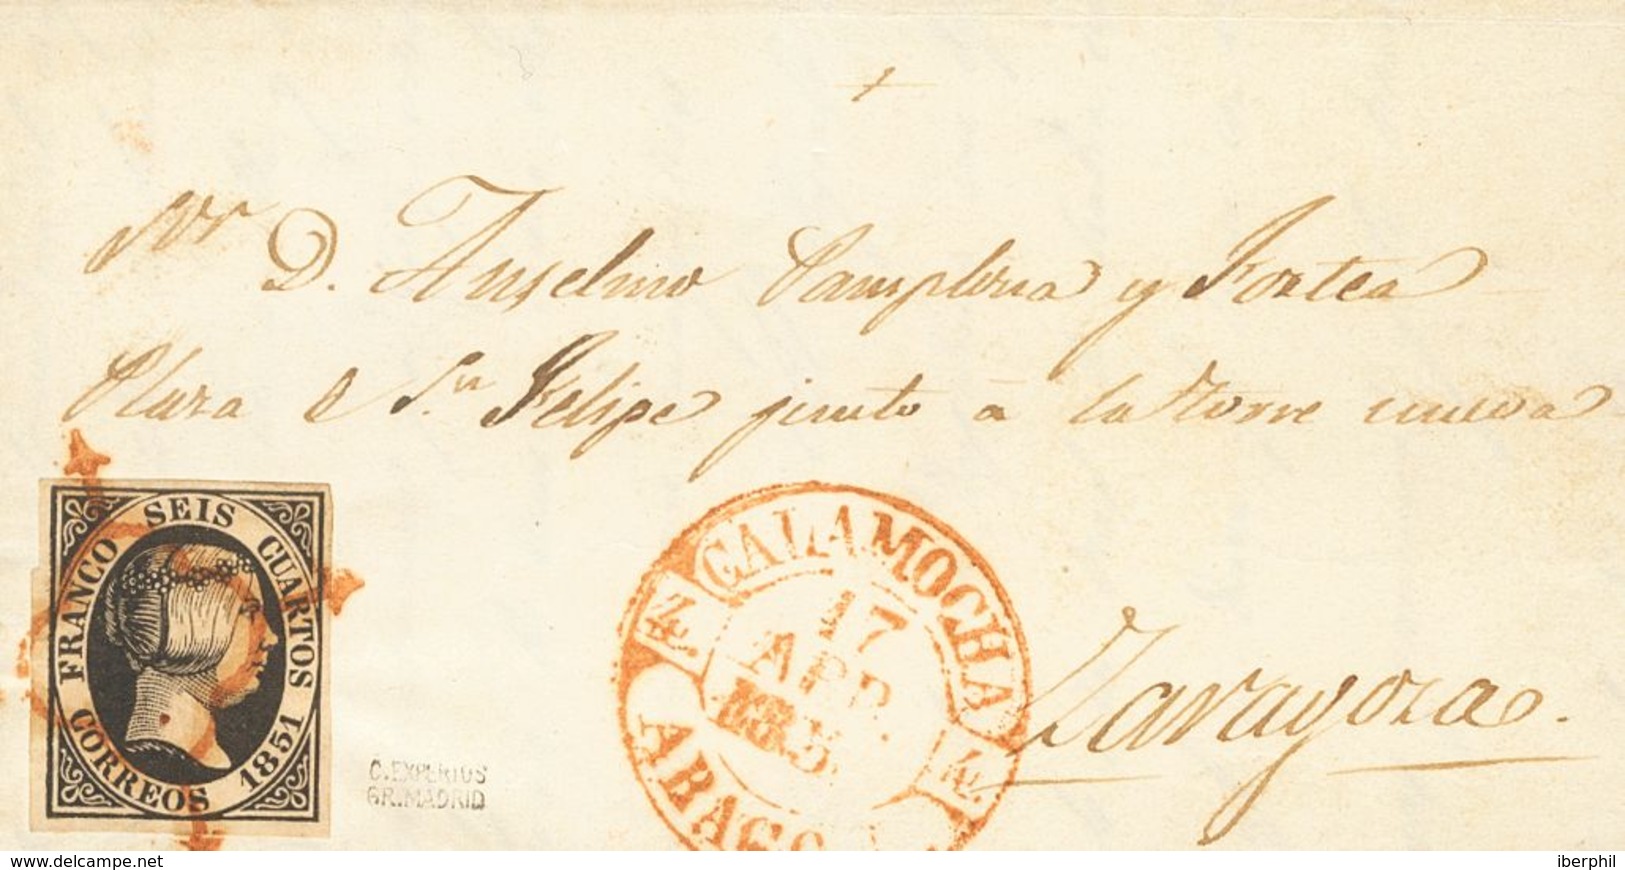 Sor D. Anselmo Pamplona y Fortea
Plaza de Sn. Felipe junto á la Torre nueva
Zaragoza.
FRANCO SEIS CUARTOS
CORREOS 1851
CALAMOCHA
17
ABR.
185
ARAGO
C.EXPERTOS
GR.MADRID
www.delcampe.net
iberphil